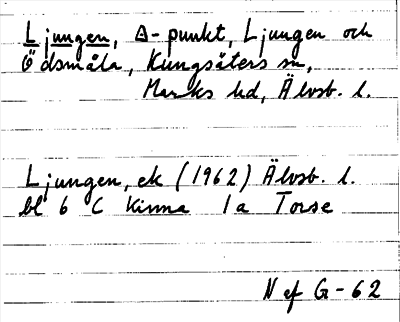 Ljungen, Δ-punkt, Ljungen och
Ödsmåla, Kungsäters sn,
Marks hd, Älvsb. l.
Ljungen, ek (1962) Älvsb. l.
bl 6 C Kinna 1a Torse
N ef G-62